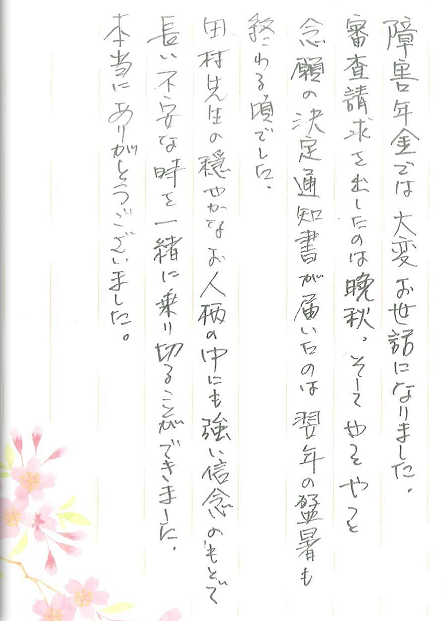 障害年金では大変お世話になりました。
審査請求を出したのは晩秋。そしてやっとやっと
念願の決定通知書が届いたのは翌年の猛暑も
終わる頃でした。
田村先生の穏やかなお人柄の中にも強い信念のもとで
長い不安な時を一緒に乗り切ることができました。
本当にありがとうございました。